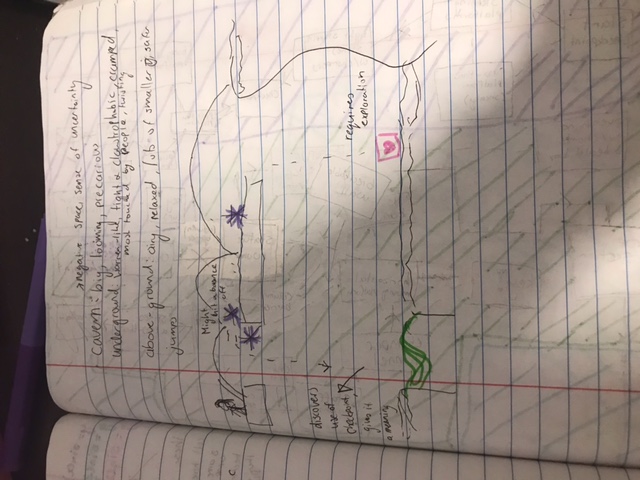 negative space, sense of uncertainty
cavern: big, looming, precarious
underground: warren-like, tight & claustrophobic, cramped,
most touched by people, twisting
above-ground: airy, relaxed, lots of smaller, safer
jumps
Might
hit & bounce
off
discovers
use of
checkpoint,
gives it
a meaning
requires
exploration
c